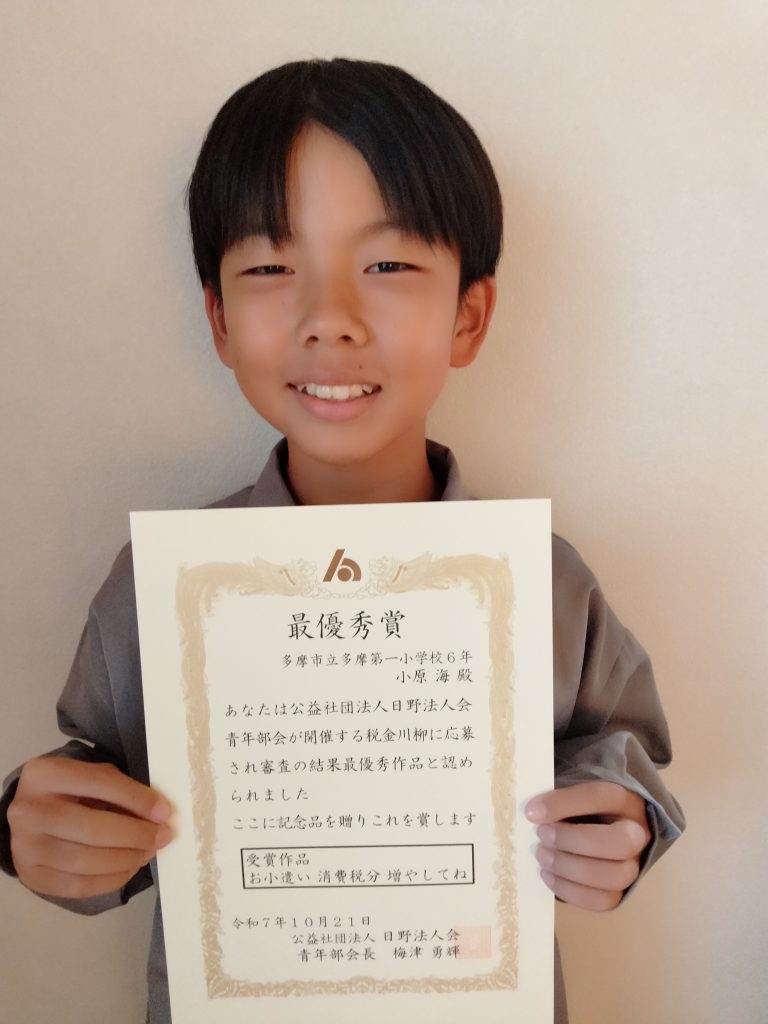 最優秀賞
多摩市立多摩第一小学校6年
小原 海 殿
あなたは公益社団法人日野法人会
青年部会が開催する税金川柳に応募
され審査の結果最優秀作品と認め
られました
ここに記念品を贈りこれを賞します
受賞作品
お小遣い 消費税分 増やしてね
令和7年10月21日
公益社団法人 日野法人会
青年部会長 梅津 勇輝